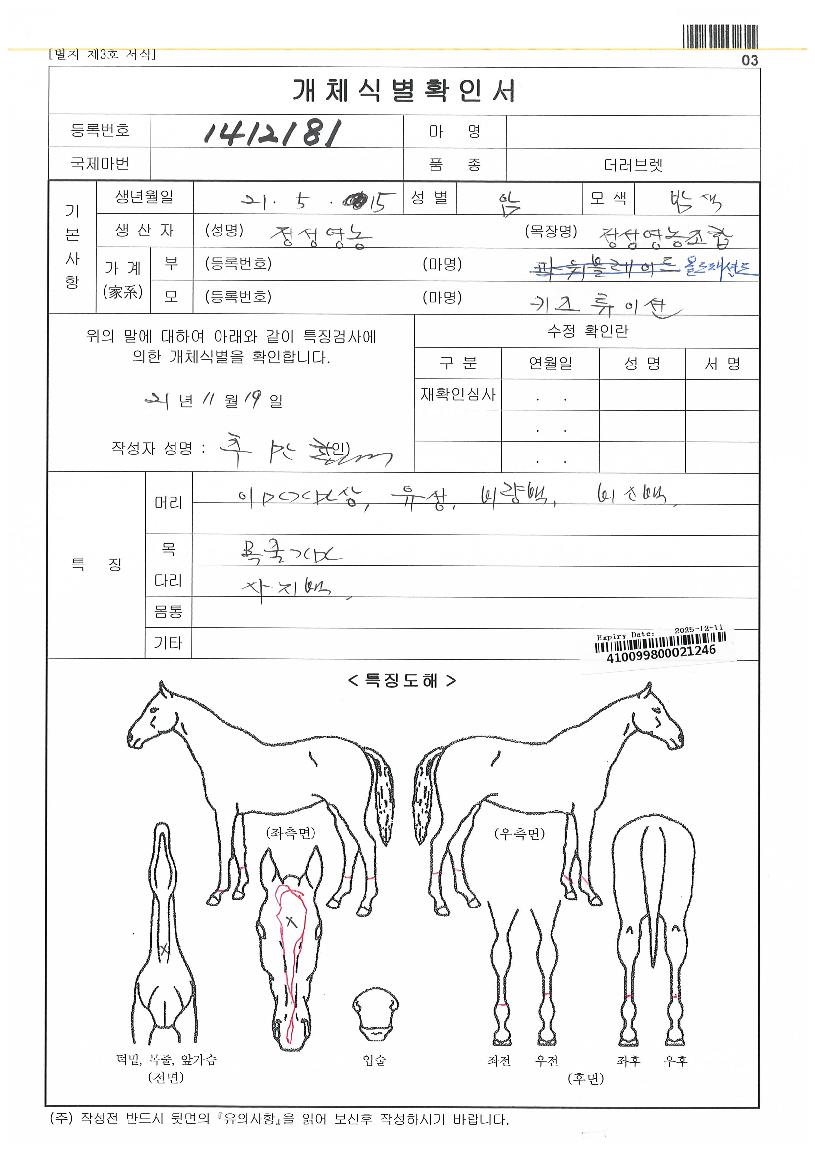 [별지 제3호 서식]
03
개체식별확인서
등록번호 1412181 마 명
국제마번 품 종 더러브렛
기본사항
생년월일 21. 5. 15 성별 암 모색 밤색
생산자 (성명) 장성영농 (목장명) 장성영농조합
가계(家系) 부 (등록번호) (마명) 올드패션드
모 (등록번호) (마명)
위의 말에 대하여 아래와 같이 특징검사에
의한 개체식별을 확인합니다.
21년 11월 19일
작성자 성명 : (인)
수정 확인란
구분 연월일 성명 서명
재확인심사 . .
. .
. .
특 징
머리 유성, 비량백, 비단백
목
다리 사지백
몸통
기타
Expiry Date: 2025-12-11
410099800021246
< 특징도해 >
(좌측면) (우측면)
턱밑, 목줄, 앞가슴 입술 좌전 우전 좌후 우후
(전면) (후면)
(주) 작성전 반드시 뒷면의 『유의사항』을 읽어 보신후 작성하시기 바랍니다.